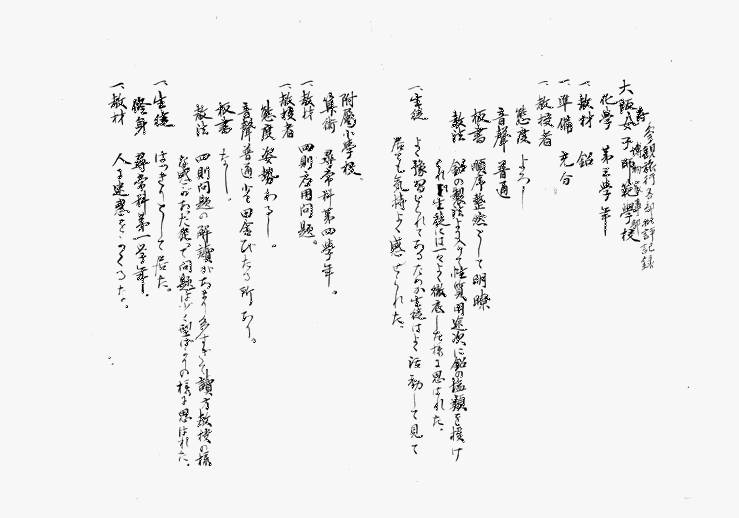 参観旅行各部批評記録
博物家事部
大阪女子師範學校
化學 第三學年
一、教材 鉛
一、準備 充分
一、教授者
態度 よろし
音聲 普通
板書 順序整然として明瞭
教法 鉛の製法より入つて性質用途次に鉛の塩類を授け
それ生徒には一々よく徹底した様に思はれた、
一、生徒 よく豫習されてあるためか生徒はよく活動して見て
居ても気持よく感ぜられた、
附属小學校、
算術 尋常科第四學年。
一、教材 四則應用問題。
一、教授者
態度 姿勢わるし。
音聲 普通 少し田舎びたる所あり。
板書 たゞし。
教法 四則問題の解讀があまり多すぎて讀方教授の様
な感があた 問題は少く型ばかりの様に思はれた。
一、生徒 はつきりとして居た。
修身 尋常科第一學年。
一、教材 人に迷惑をかくるな。